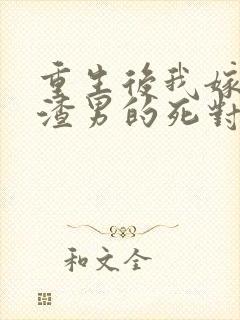 重生後我嫁
渣男的死對
和文全